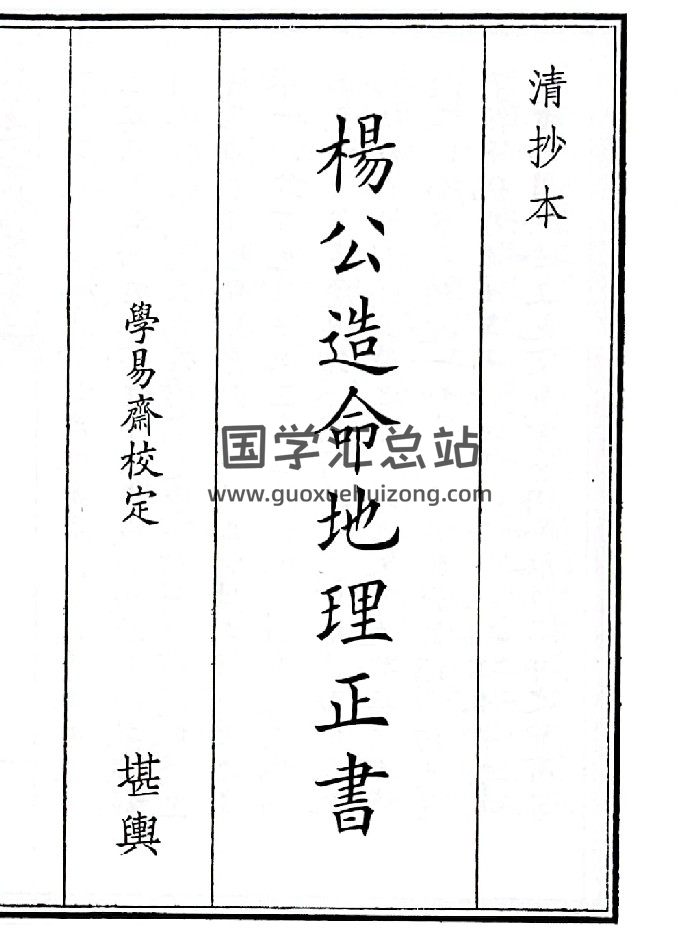 清抄本
楊公造命地理正書
學易齋校定
堪輿
国学汇总站
www.guoxuehuizong.com